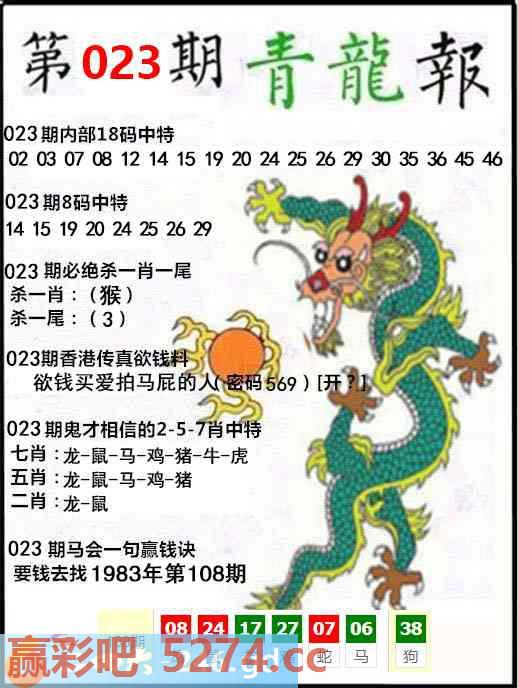 第023期青龍報
023期内部18码中特
02 03 07 08 12 14 15 19 20 24 25 26 29 30 36 38 45 46
023期8码中特
14 15 19 20 24 25 26 29
023期必绝杀一肖一尾
杀一肖:(猴)
杀一尾:(3)
023期香港传真欲钱料
欲钱买爱拍马屁的人(密码569)[开?]
023期鬼才相信的2-5-7肖中特
七肖:龙-鼠-马-鸡-猪-牛-虎
五肖:龙-鼠-马-鸡-猪
二肖:龙-鼠
023期马会一句赢钱诀
要钱去找1983年第108期
08 24 17 27 07 06 38
蛇 马 狗
赢彩吧 5274.cc